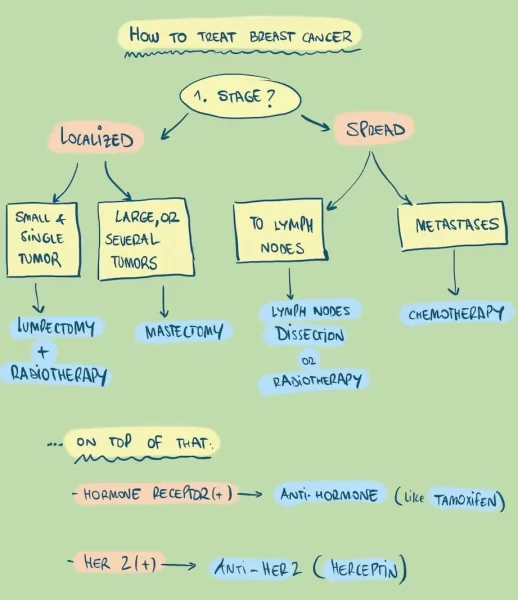 HOW TO TREAT BREAST CANCER
1. STAGE?
LOCALIZED
SPREAD
SMALL &
SINGLE
TUMOR
LARGE, OR
SEVERAL
TUMORS
TO LYMPH
NODES
METASTASES
LUMPECTOMY
+
RADIOTHERAPY
MASTECTOMY
LYMPH NODES
DISSECTION
OR
RADIOTHERAPY
CHEMOTHERAPY
... ON TOP OF THAT:
- HORMONE RECEPTOR (+) → ANTI-HORMONE (LIKE TAMOXIFEN)
- HER 2 (+) → ANTI-HER2 (HERCEPTIN)